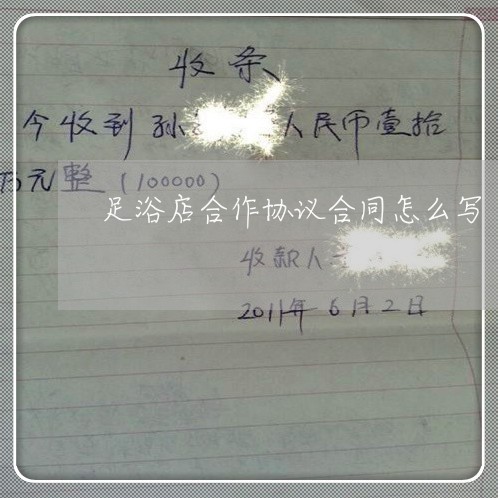 收条
今收到孙 人民币壹拾
万元整(100000)
足浴店合作协议合同怎么写
收款人
2011年6月2日